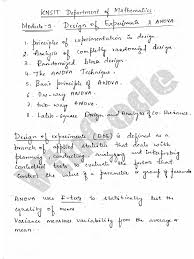 KNSIT Department of Mathematics
Module-5: Design of Experiments & ANOVA
1. principles of experimentation in design
2. Analysis of completely randomized design
3. Randomized block design
4. The ANOVA Technique
5. Basic principle of ANOVA
6. One-way ANOVA
7. Two-way ANOVA
8. Latin-Square Design and Analysis of Co-Variance.
Design of experiments (DOE) is defined as a
branch of applied statistics that deals with
planning, conducting, analyzing and interpreting
controlled tests to evaluate the factors that
control the value of a parameter or group of parameters.
ANOVA uses F-tests to statistically test the
equality of means
Variance measures variability from the average or
mean.